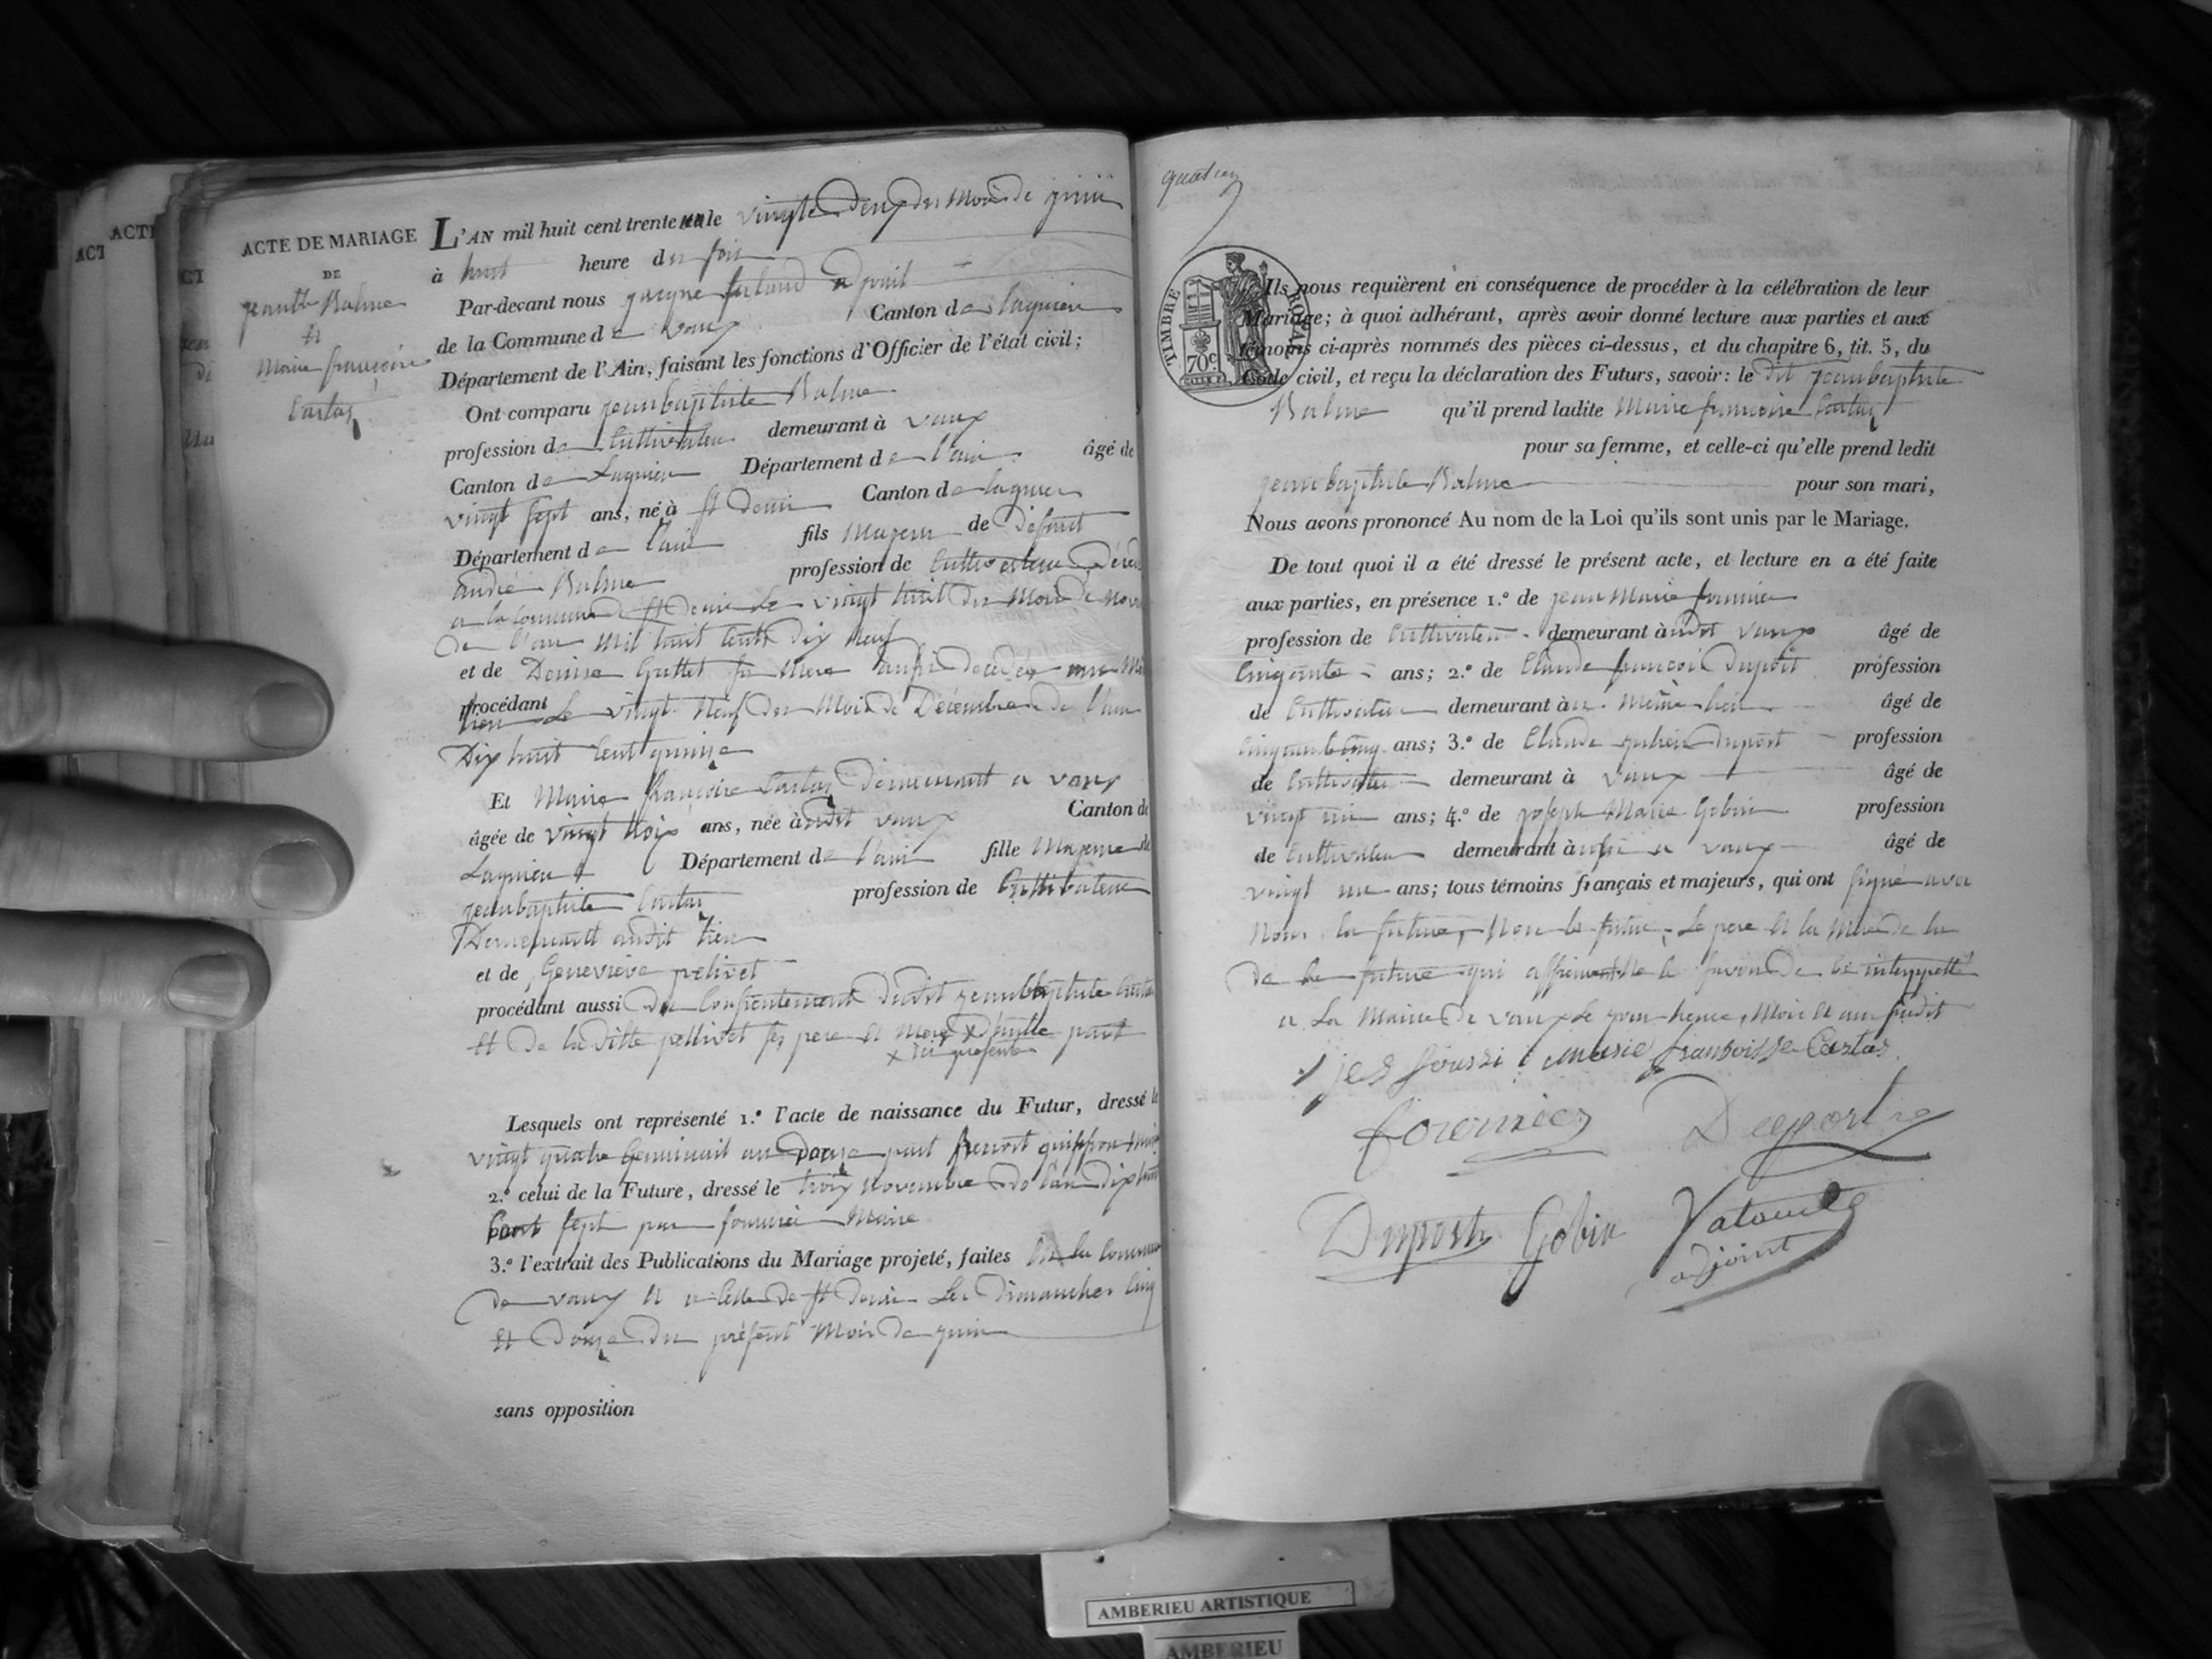 ACTE DE MARIAGE
DE
jean bte Balme
et
Marie françoise
Cartaz
L'AN mil huit cent trente un le vingt deux du mois de juin
à huit heure du soir
Par-devant nous adjoint
de la Commune de Vaux Canton de lagnieu
Département de l'Ain, faisant les fonctions d'Officier de l'état civil;
Ont comparu jean baptiste Balme
profession de Cultivateur demeurant à vaux
Canton de Lagnieu Département de l'ain âgé de
vingt sept ans, né à st Denis Canton de lagnieu
Département de l'ain fils Majeur de Defunt
andré Balme profession de Cultivateur Décédé
a la Commune de st Denis le vingt huit du Mois de Nov
De l'an mil huit Cent Dix Neuf
et de Denise Guttet sa Mere aussi decedée au Mê
procédant
lieu le vingt Neuf du Mois de Décembre de l'an
Dix huit Cent quinze
Et Marie françoise Cartaz Demeurant a vaux
âgée de vingt trois ans, née audit vaux Canton de
Lagnieu Département de l'ain fille Majeure de
jean baptiste Cartaz profession de Cultivateur
Demeurant audit lieu
et de Genevieve pelivet
procédant aussi du Consentement dudit jean baptiste Carta
et De la ditte pellivet ses pere et mere x D'autre part
x ici presents
Lesquels ont représenté 1.º l'acte de naissance du Futur, dressé le
vingt quatre Germinail an Douze part Benoit
2.º celui de la Future, dressé le trois Novembre de l'an dix huit
Cent sept par fournier Maire
3.º l'extrait des Publications du Mariage projeté, faites en la Commune
de vaux et a Celle de st Denis Les Dimanches Cinq
et Douze Du présent Mois de juin
sans opposition
TIMBRE ROYAL
70 c.
Ils nous requièrent en conséquence de procéder à la célébration de leur
Mariage; à quoi adhérant, après avoir donné lecture aux parties et aux
témoins ci-après nommés des pièces ci-dessus, et du chapitre 6, tit. 5, du
Code civil, et reçu la déclaration des Futurs, savoir: le dit jean baptiste
Balme qu'il prend ladite Marie françoise Cartaz
pour sa femme, et celle-ci qu'elle prend ledit
jean baptiste Balme pour son mari,
Nous avons prononcé Au nom de la Loi qu'ils sont unis par le Mariage.
De tout quoi il a été dressé le présent acte, et lecture en a été faite
aux parties, en présence 1.º de jean Marie fournier
profession de Cultivateur demeurant audit vaux âgé de
Cinquante ans; 2.º de Claude françois Duport profession
de Cultivateur demeurant au Même lieu âgé de
Cinquante Cinq ans; 3.º de Claude julien Duport profession
de Cultivateur demeurant à vaux âgé de
vingt un ans; 4.º de joseph Marie Gobin profession
de Cultivateur demeurant aussi a vaux âgé de
vingt un ans; tous témoins français et majeurs, qui ont signé avec
Nous la future, Non le futur, Le pere et la Mere de la
de la future qui le savoir de ce
a La Mairie de vaux Le jour heure, Mois et an susdit
marie franboisse Cartas
fournier Duport
Duport Gobin
adjoint
AMBERIEU ARTISTIQUE
AMBERIEU